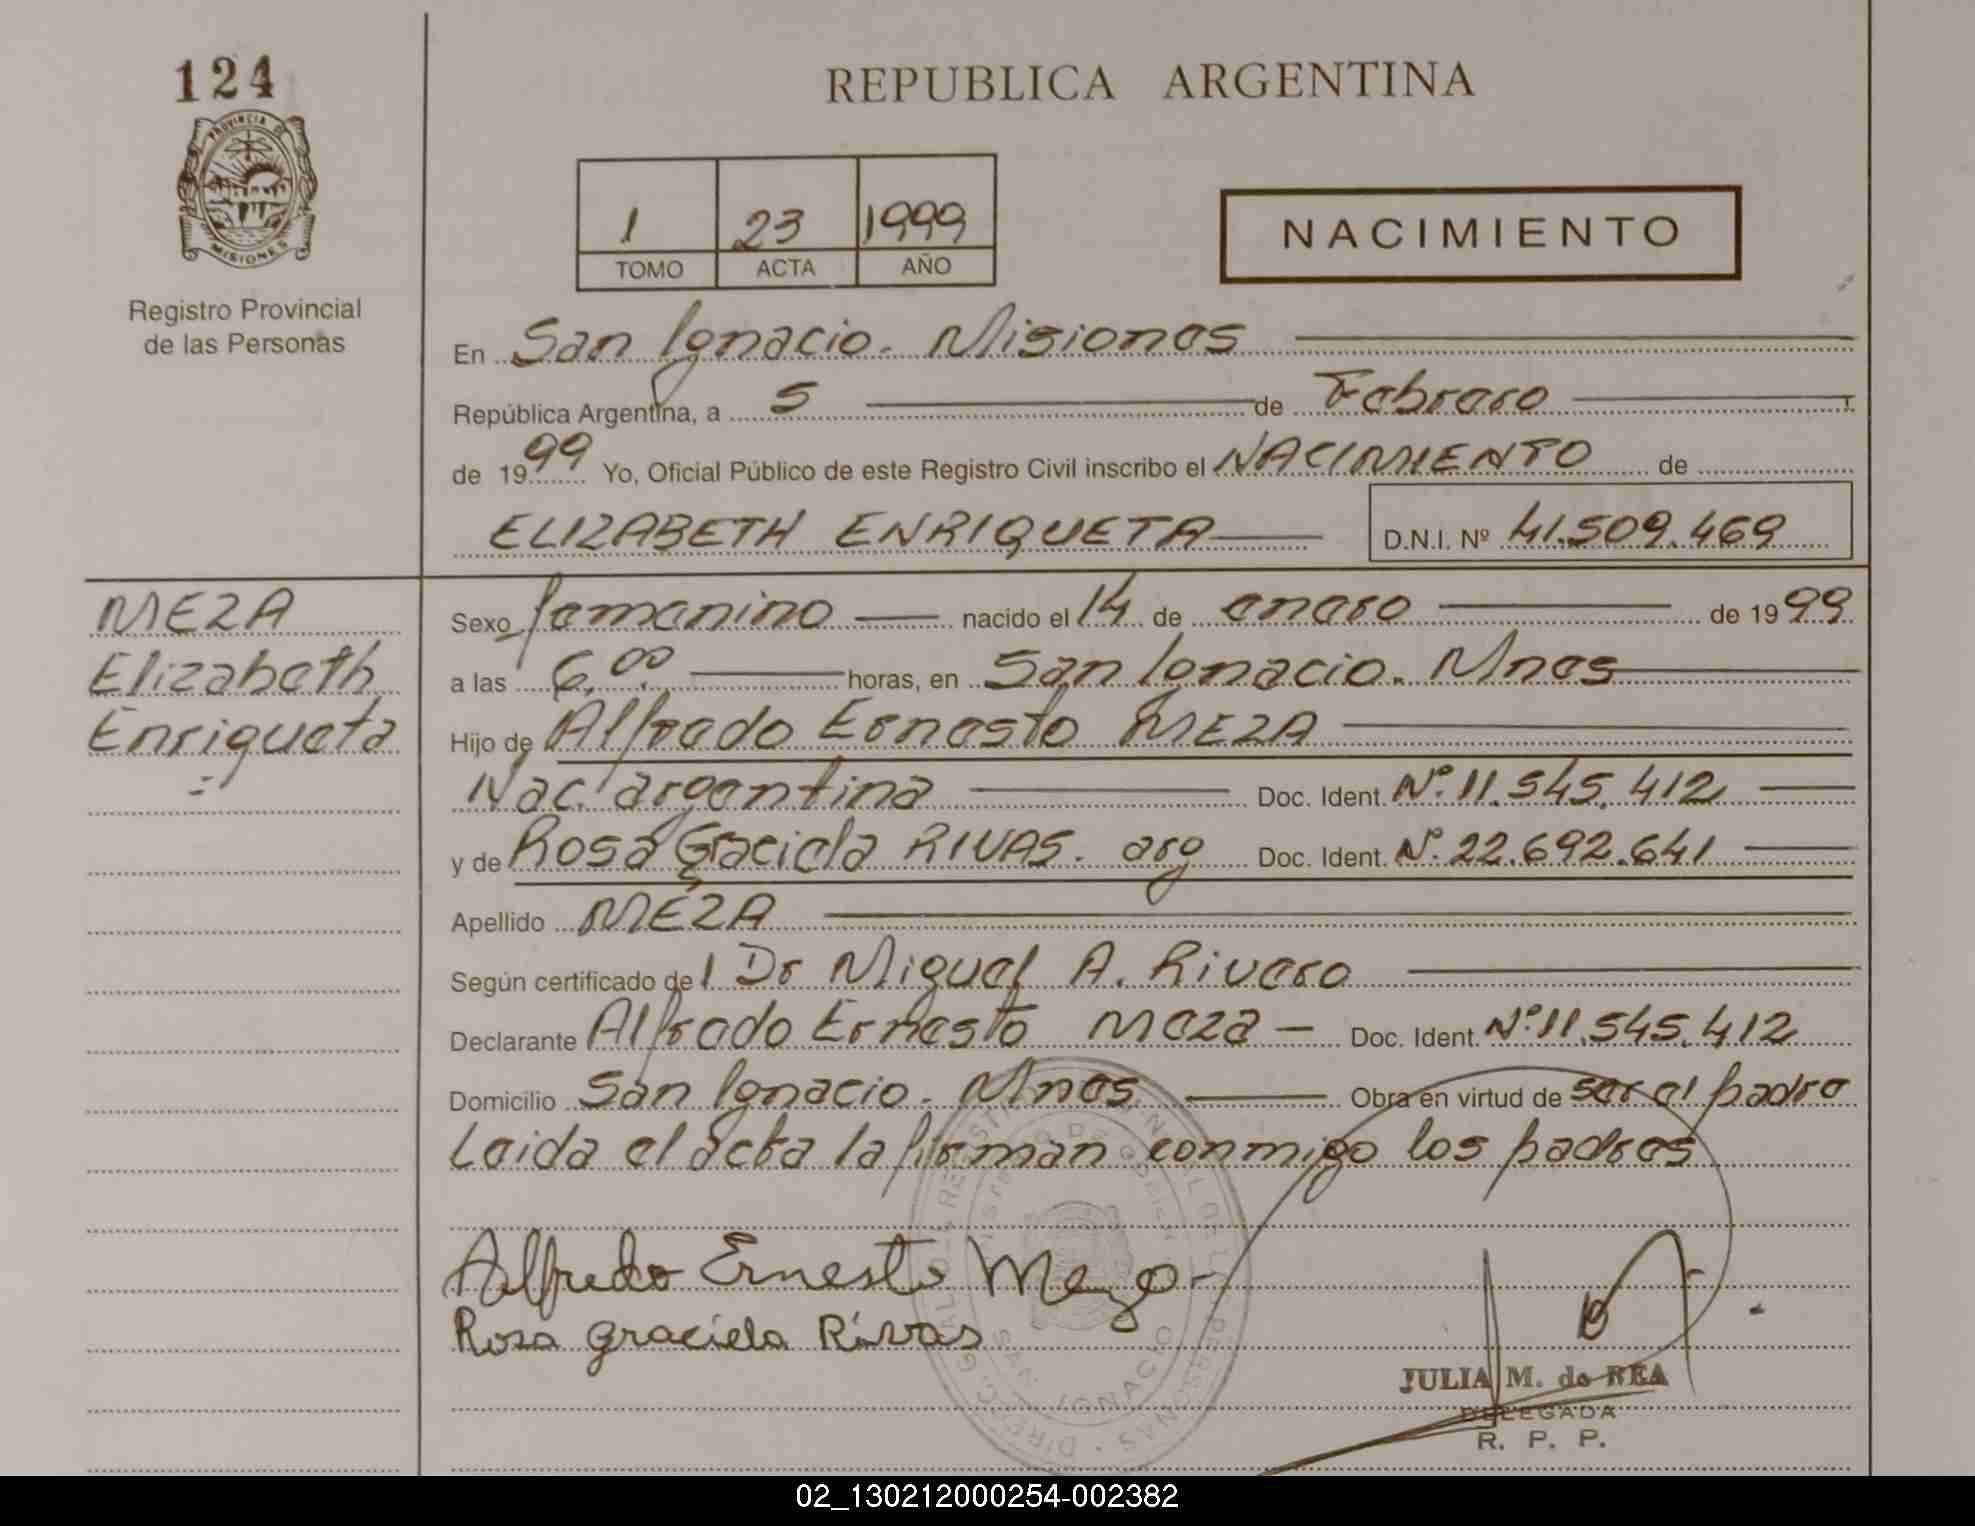 124
PROVINCIA DE
MISIONES
Registro Provincial
de las Personas
REPUBLICA ARGENTINA
1 23 1999
TOMO ACTA AÑO
NACIMIENTO
En San Ignacio. Misiones
República Argentina, a 5 de Febrero
de 1999 Yo, Oficial Público de este Registro Civil inscribo el NACIMIENTO de
ELIZABETH ENRIQUETA D.N.I. Nº 41.509.469
MEZA
Elizabeth
Enriqueta
Sexo femenino nacido el 14 de enero de 1999
a las 6,00. horas, en San Ignacio. Mnes
Hijo de Alfredo Ernesto MEZA
Nac. argentina Doc. Ident. Nº 11.545.412
y de Rosa Graciela RIVAS. arg Doc. Ident. Nº 22.692.641
Apellido MEZA
Según certificado del Dr Miguel A. Rivero
Declarante Alfredo Ernesto Meza - Doc. Ident. Nº 11.545.412
Domicilio San Ignacio. Mnes Obra en virtud de ser el padre
Leida el acta la firman conmigo los padres
Alfredo Ernesto Meza
Rosa Graciela Rivas
SAN IGNACIO
JULIA M. de REA
DELEGADA
R. P. P.
02_130212000254-002382